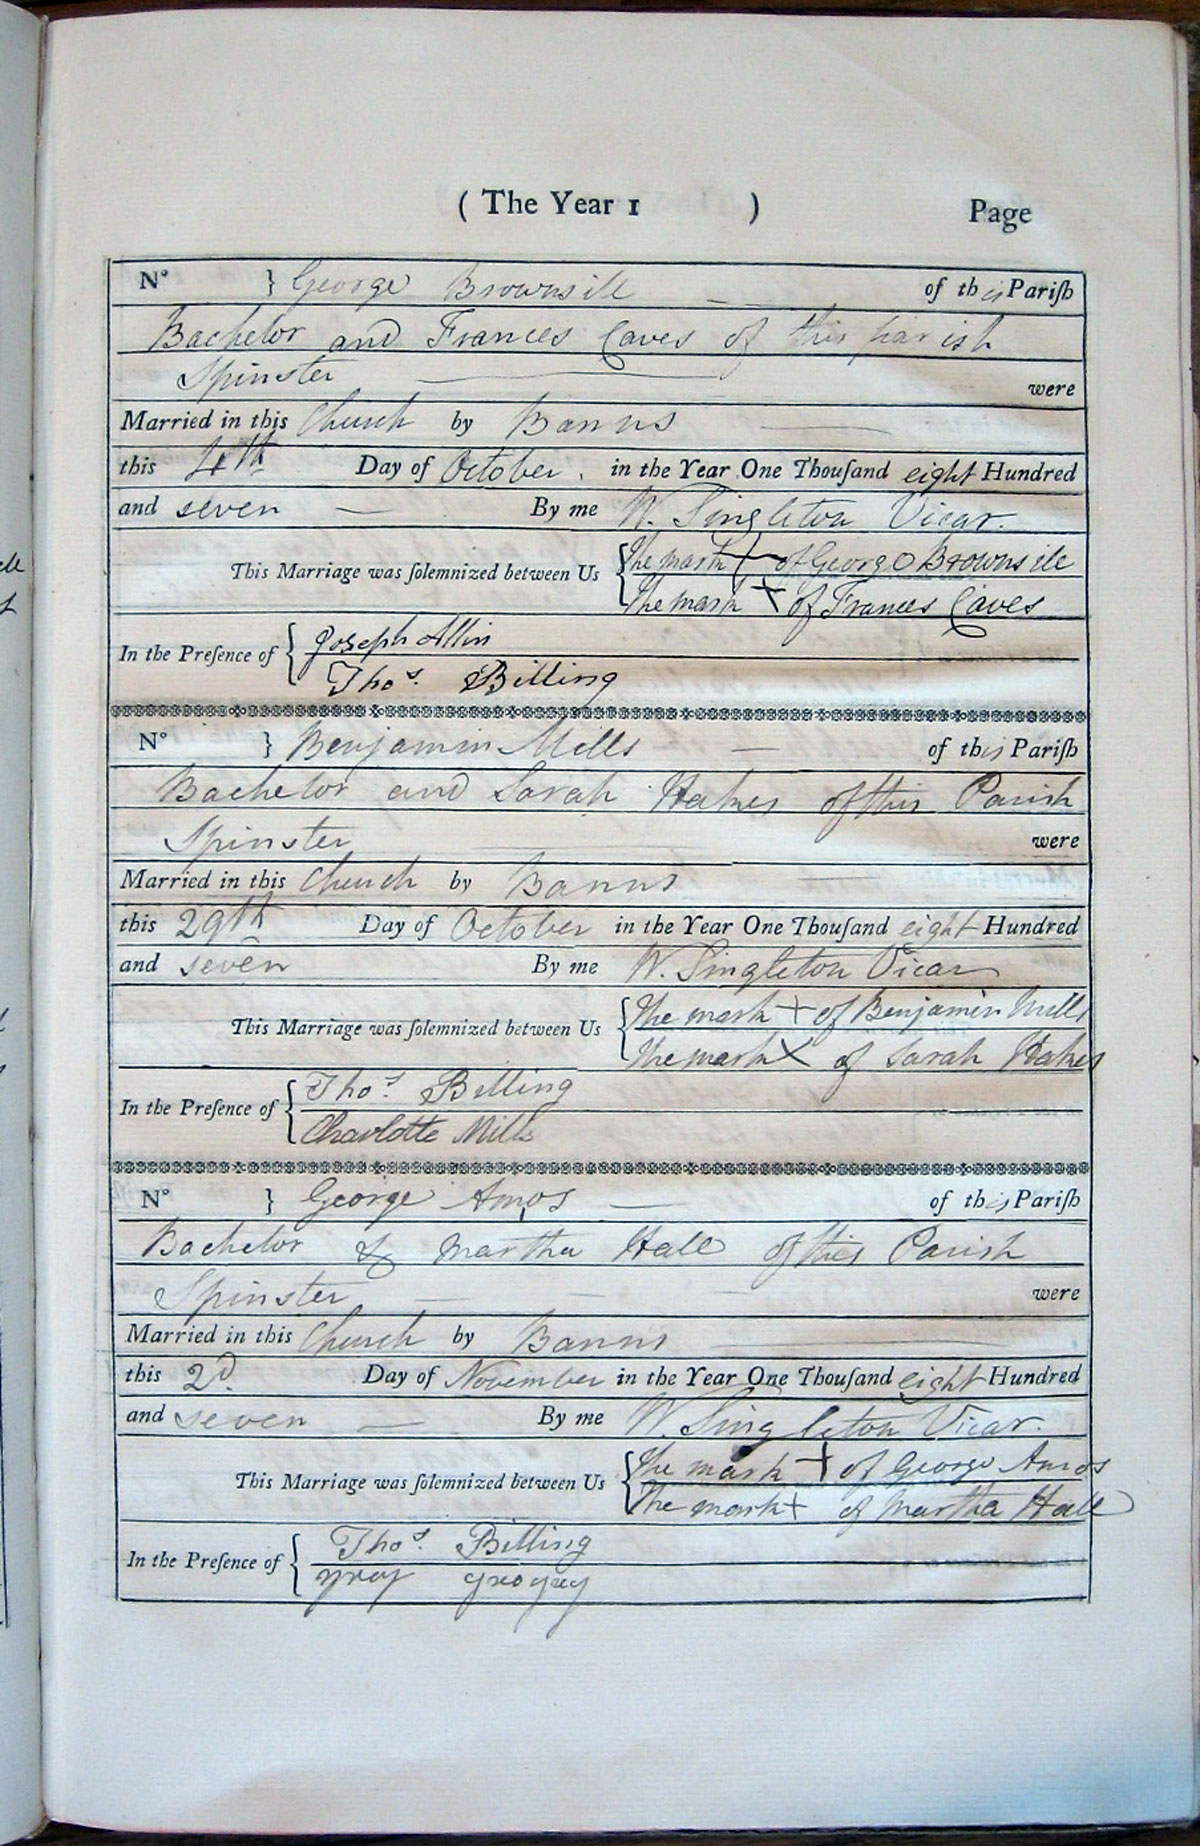 ( The Year 1 ) Page
N° } George Brownsill of this Pariſh
Bachelor and Frances Caves of this parish
Spinster were
Married in this Church by Banns
this 4th Day of October in the Year One Thouſand eight Hundred
and seven By me W. Singleton Vicar.
This Marriage was ſolemnized between Us { The mark + of George Brownsill
The mark X of Frances Caves
In the Preſence of { Joseph Allin
Thos. Billing
N° } Benjamin Mills of this Pariſh
Bachelor and Sarah Hakes of this Parish
Spinster were
Married in this Church by Banns
this 29th Day of October in the Year One Thouſand eight Hundred
and seven By me W. Singleton Vicar
This Marriage was ſolemnized between Us { The mark + of Benjamin Mills
The mark X of Sarah Hakes
In the Preſence of { Thos. Billing
Charlotte Mills
N° } George Amos of this Pariſh
Bachelor & Martha Hall of this Parish
Spinster were
Married in this Church by Banns
this 2d. Day of November in the Year One Thouſand eight Hundred
and seven By me W. Singleton Vicar.
This Marriage was ſolemnized between Us { The mark + of George Amos
The mark + of Martha Hall
In the Preſence of { Thos. Billing